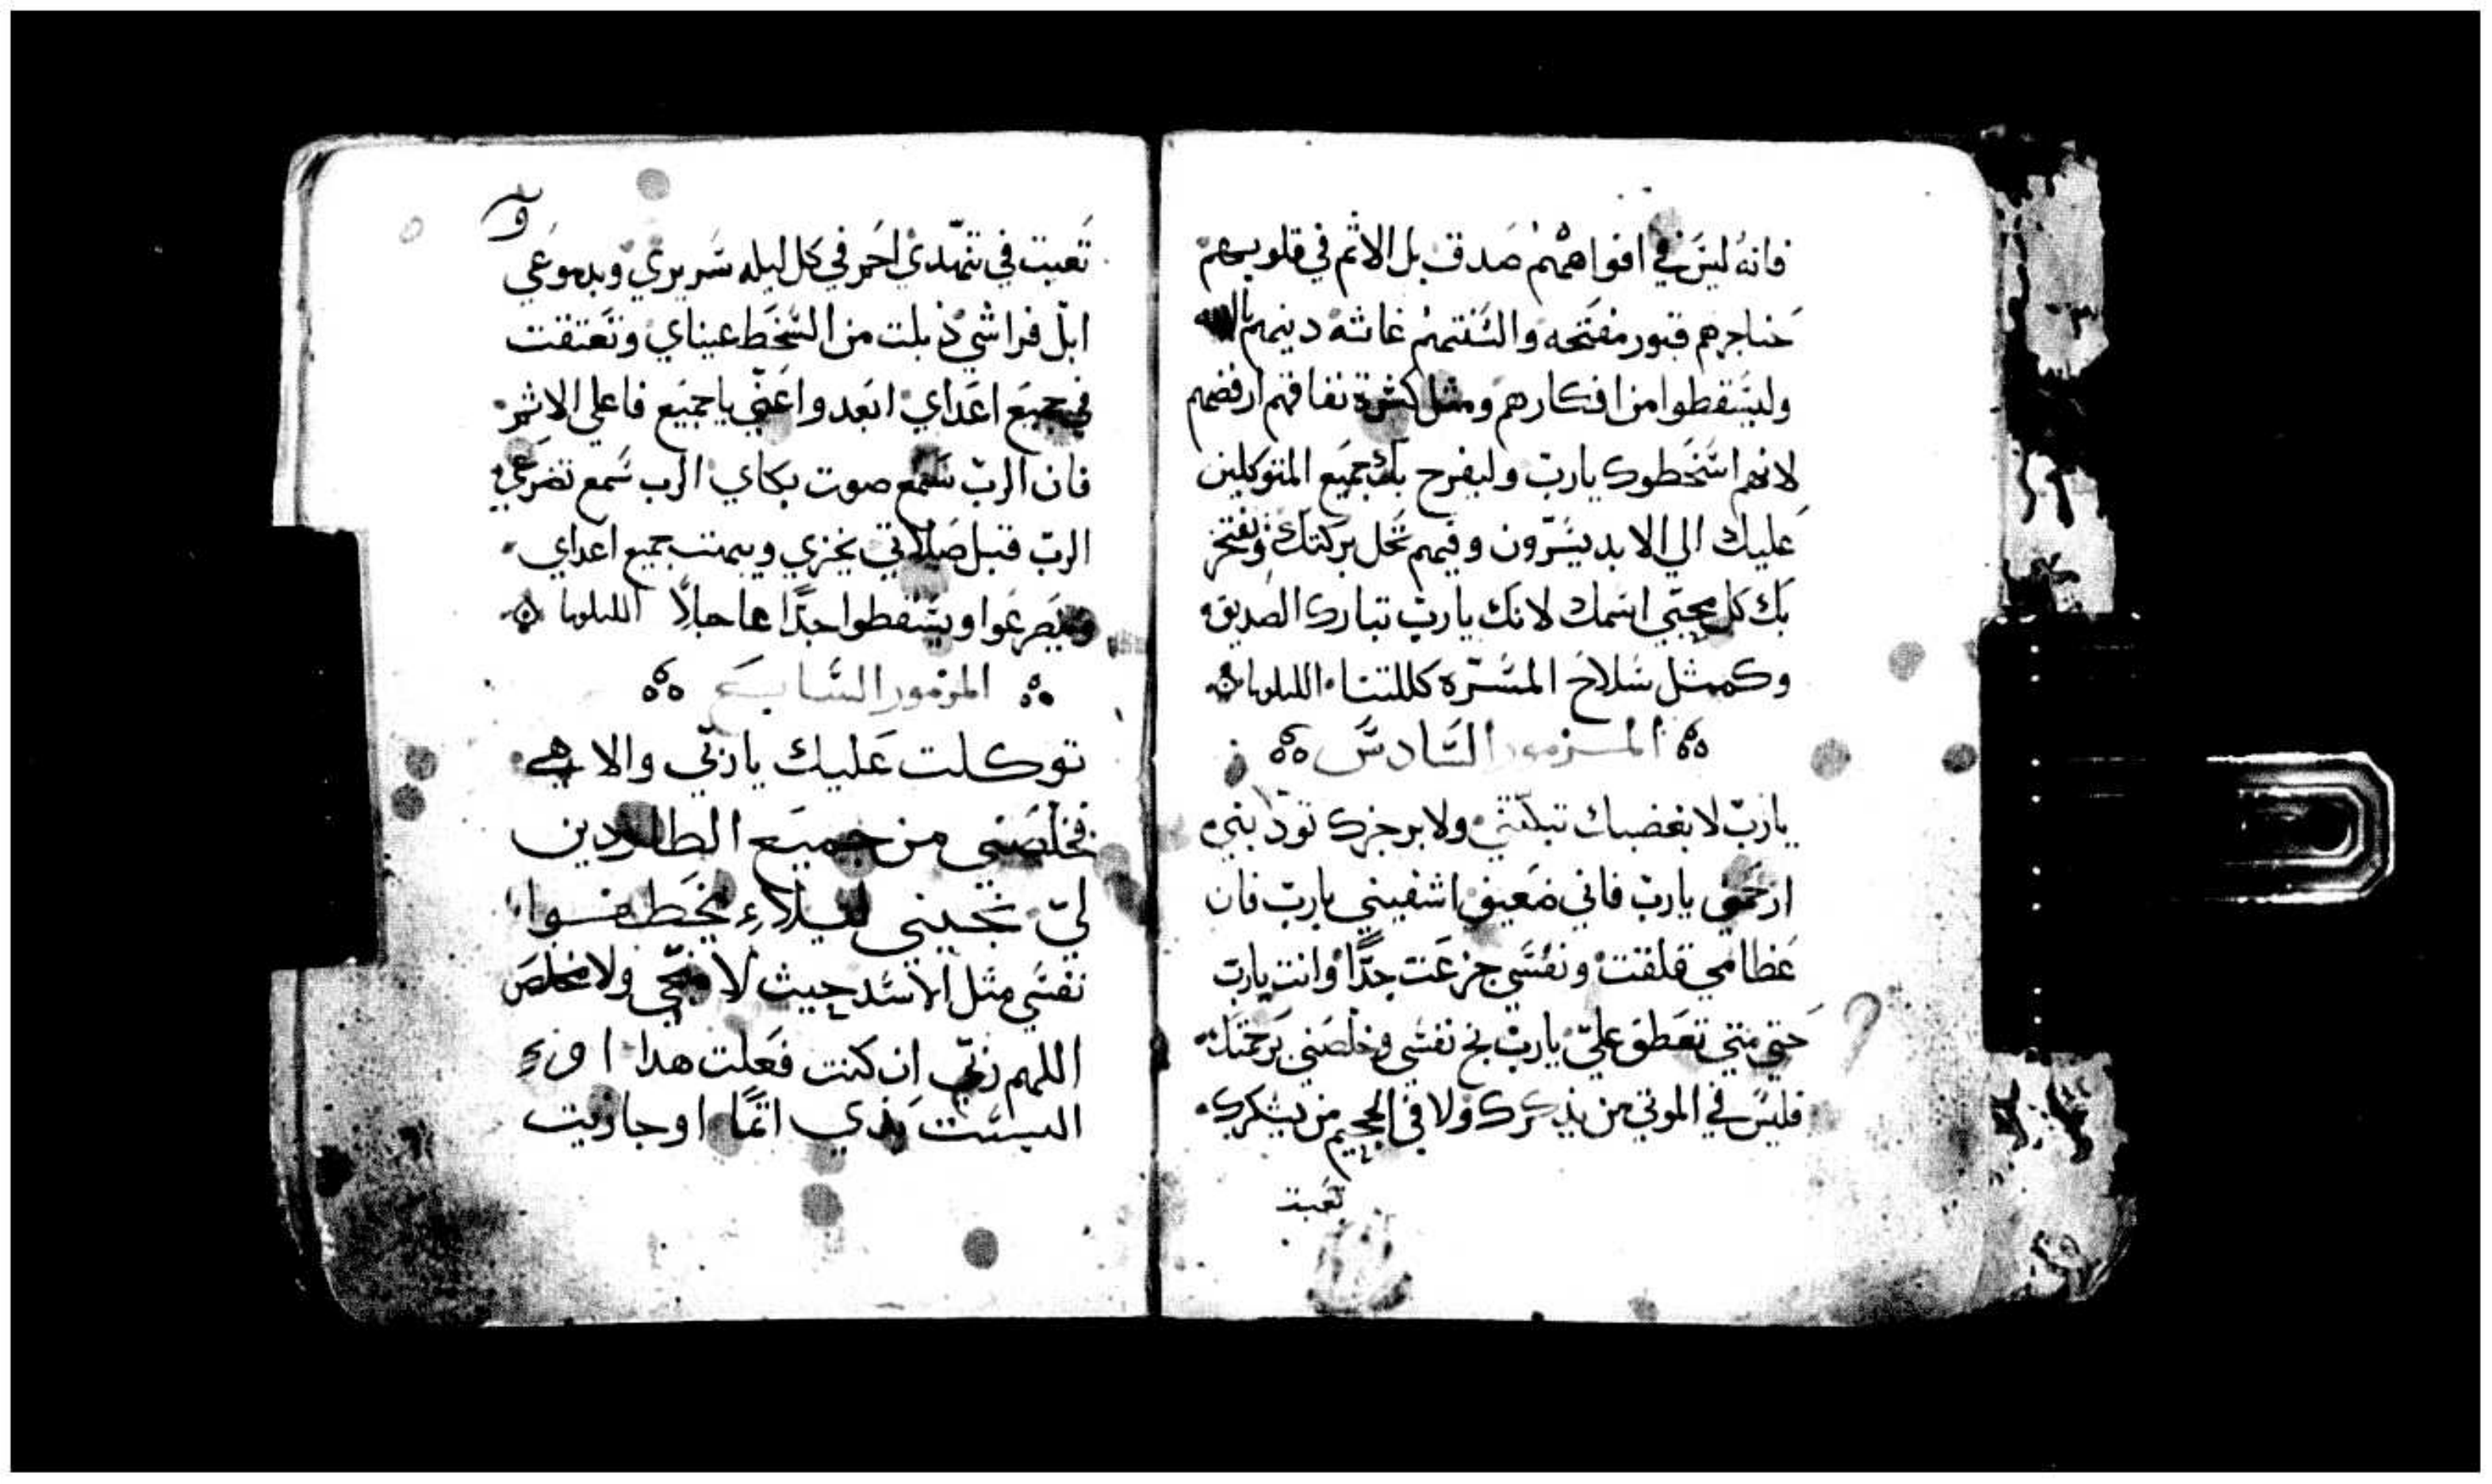 فانه ليس في افواههم صدق بل الاثم في قلوبهم
حناجرهم قبور مفتحه والسنتهم غاشه دينهم يالله
وليسقطوا من افكارهم ومثل كثرة نفاقهم ارفضهم
لانهم اسخطوك يارب وليفرح بك جميع المتوكلين
عليك الي الابد يسرون وفيهم تحل بركتك ويفتخر
بك كل محبي اسمك لانك يارب تبارك الصديق
وكمثل سلاح المسرة كللتنا الليلويا
المزمور السادس
يارب لا بغضبك تبكتني ولا برجزك تودبني
ارحمني يارب فاني ضعيف اشفيني يارب فان
عظامي قلقت ونفسي جزعت جدًا وانت يارب
حتي متي تعطف عليّ يارب نج نفسي وخلصني برحمتك
فليس في الموتي من يذكرك ولا في الجحيم من يشكرك
تعبت
تعبت في تنهدي احم في كل ليله سريري وبدموعي
ابلّ فراشي ذبلت من السخط عيناي وتعتقت
في جميع اعداي ابعدوا عنّي ياجميع فاعلي الاثم
فان الربّ سمع صوت بكاي الرب سمع تضرعي
الربّ قبل صلاتي يخزي ويبهت جميع اعداي
ويصرعوا ويسقطوا جدًا عاجلًا الليلويا
المزمور السابع
توكلت عليك ياربّي والاهي
فخلصني من جميع الطاردين
ليّ نجيني ليلاء يخطفوا
نفسي مثل الاسد حيث لا منجّي ولا مخلص
اللهم ربّي ان كنت فعلت هدا او
اليست يدي اثمًا اوجازيت